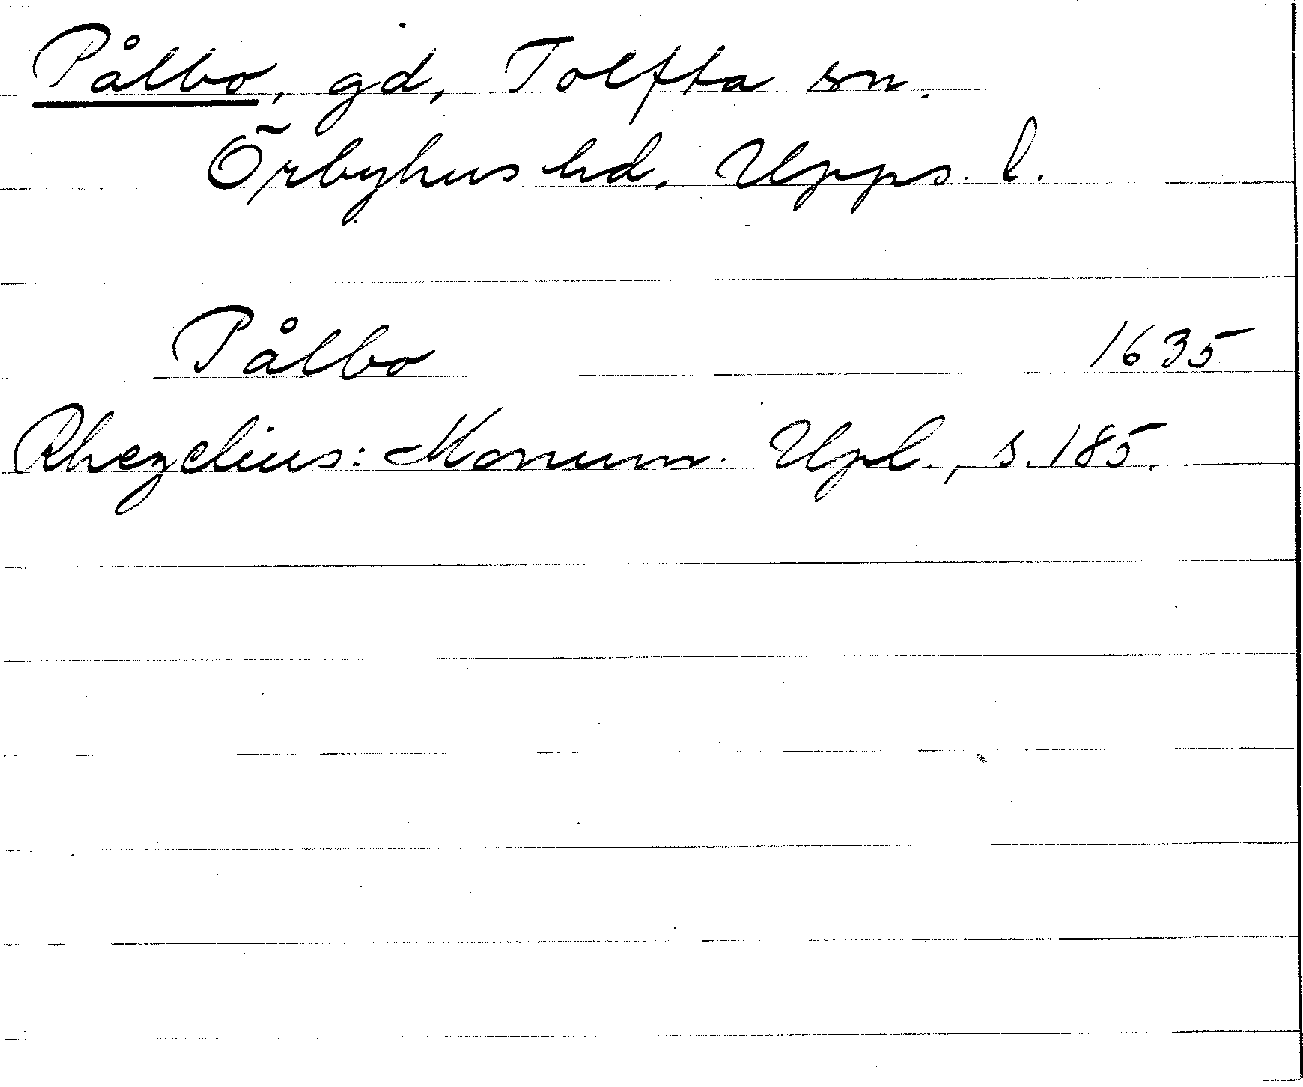 Pålbo, gd, Tolfta sn.
Örbyhus hd. Upps. l.
Pålbo 1635
Rhezelius: Monum. Upl., s. 185.